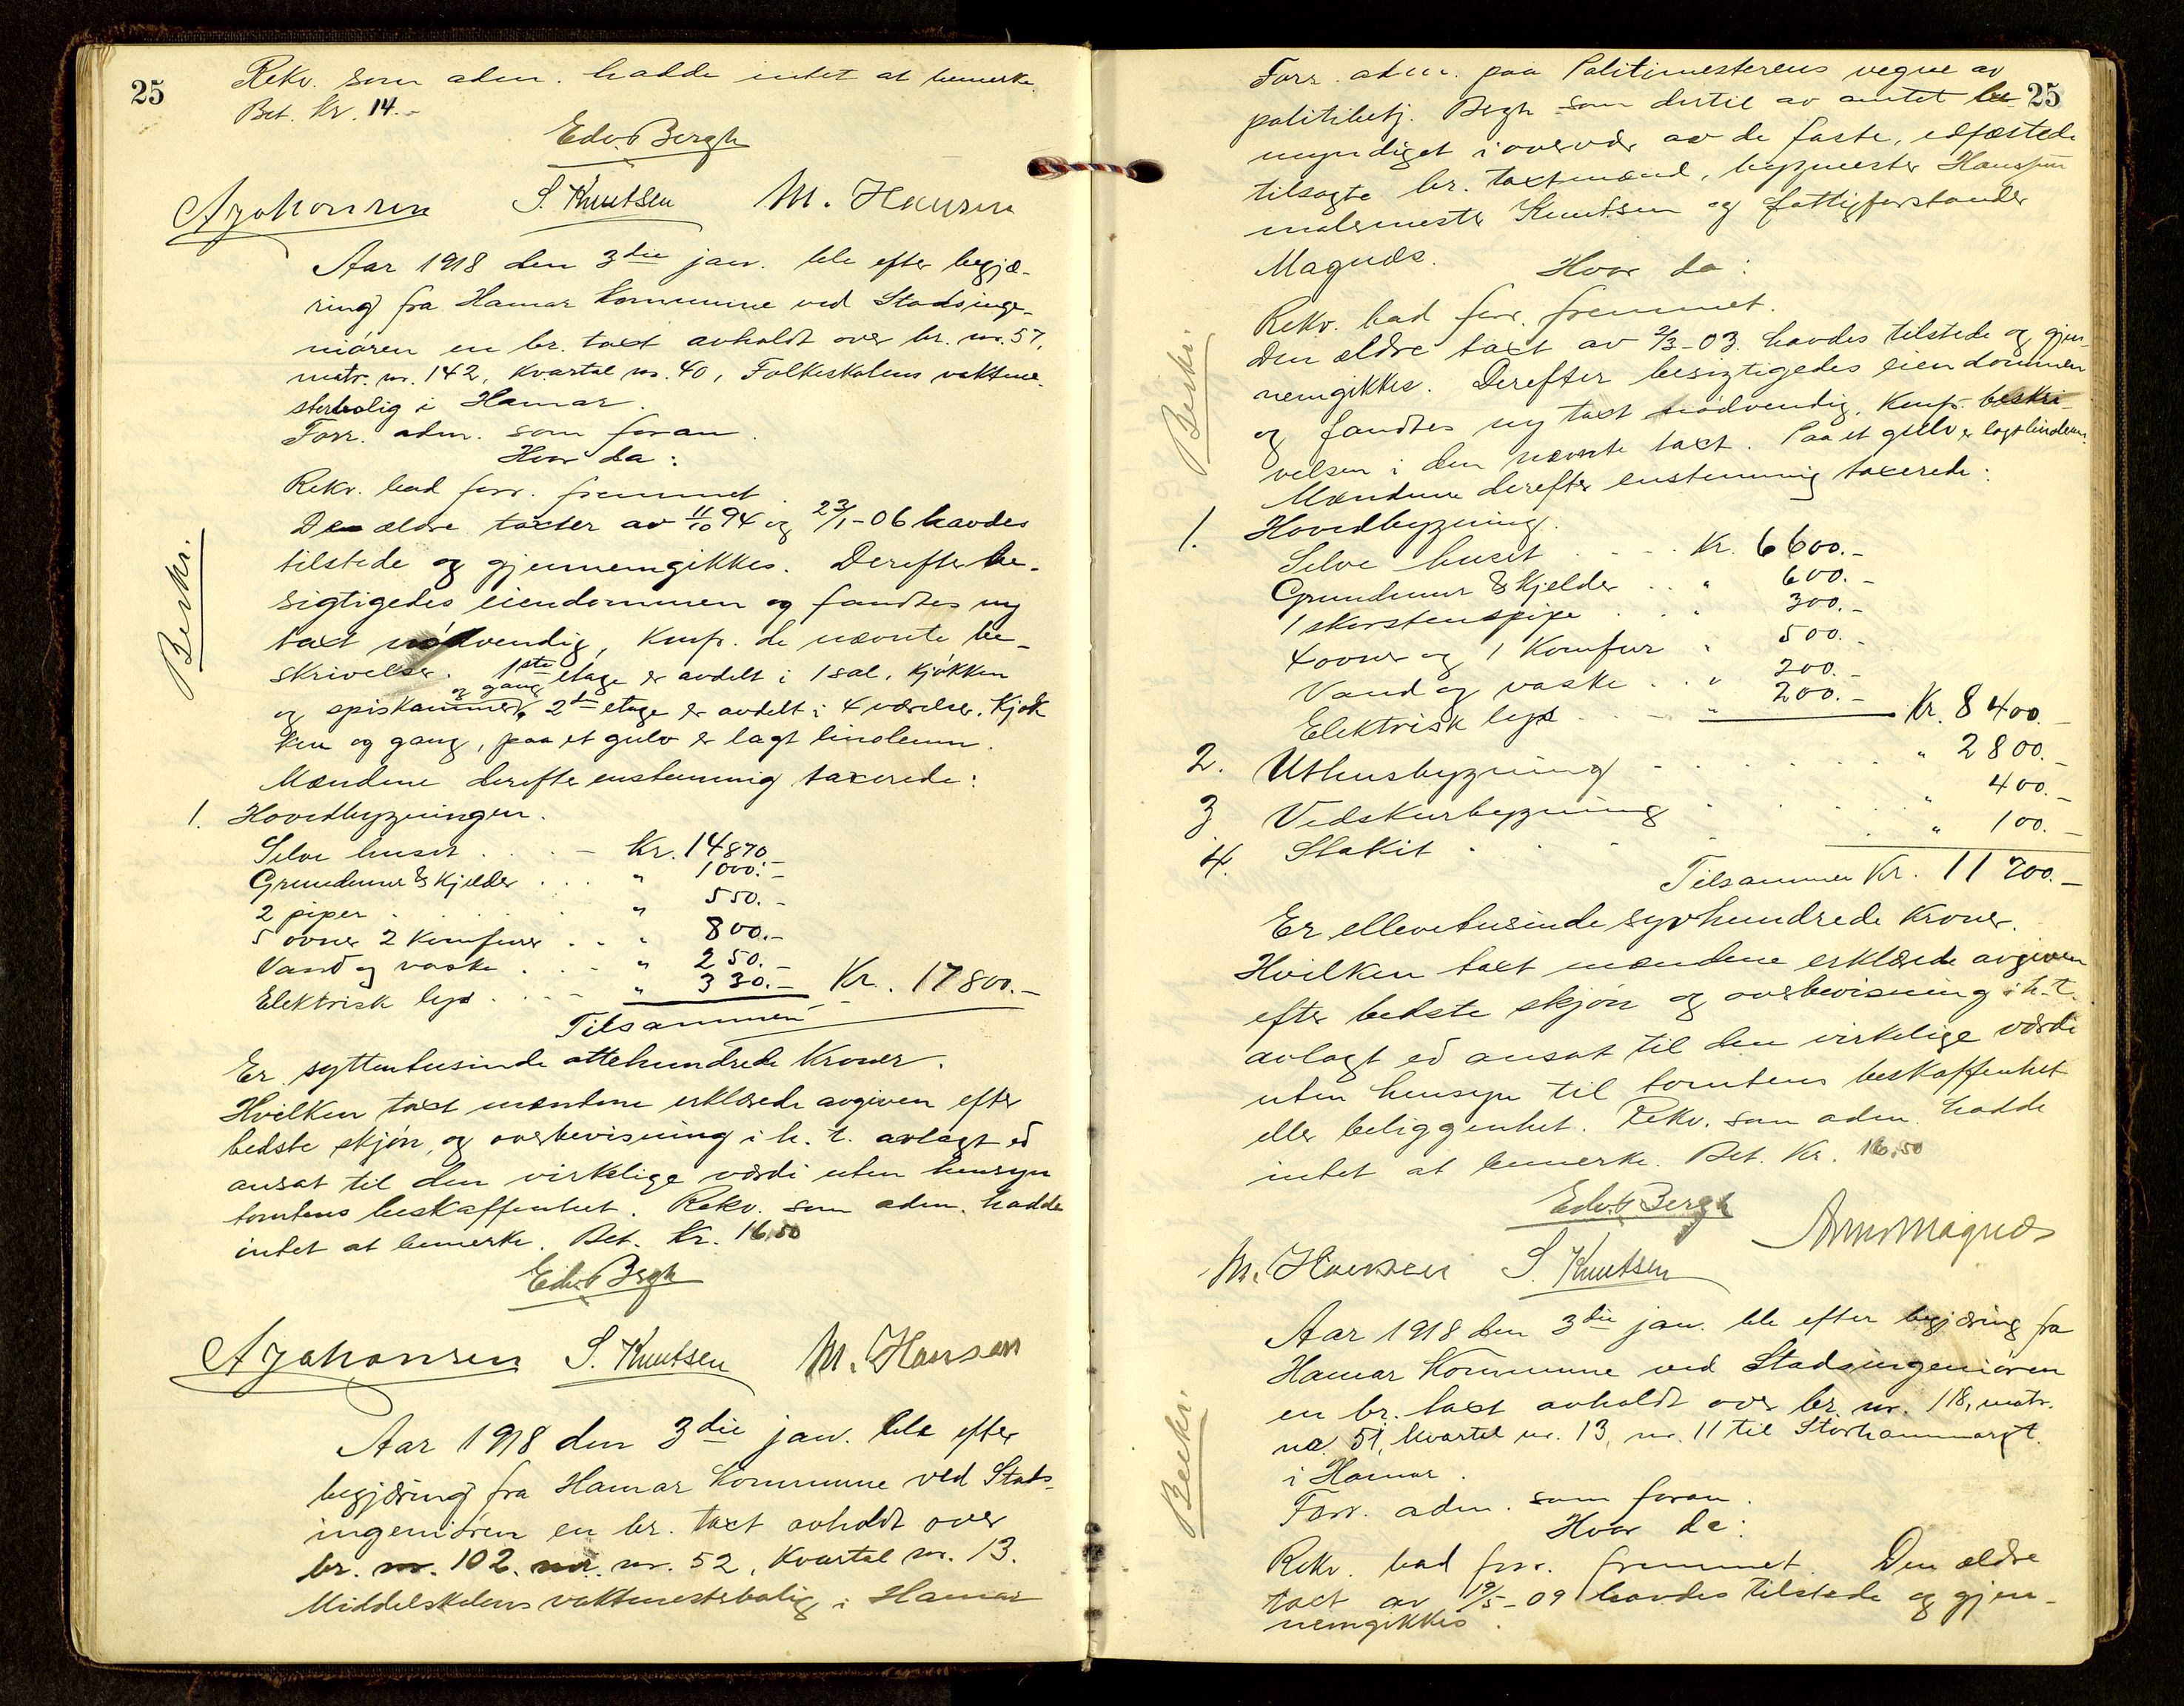 25
Rekv. som adm. hadde intet at bemerke.
Bet. Kr. 14.-
Edv. Bergh
A Johansen S. Knutsen M. Hansen
Aar 1918 den 3die jan. ble efter begjæ-
ring fra Hamar Kommune ved Stadsinge-
niøren en br. taxt avholdt over br. nr. 57,
matr. nr. 142, Kvartal nr. 40, Folkeskolens vaktme-
sterbolig i Hamar.
Forr. adm. som foran.
Hvor da:
Rekv. bad forr. fremmet.
Beskr.
De ældre taxter av 11/10 94 og 23/1-06 havdes
tilstede og gjennemgikkes. Derefter be-
sigtigedes eiendommen og fandtes ny
taxt nødvendig, Kmfr. de nævnte be-
skrivelser. 1ste etage er avdelt i 1 sal, kjøkken
og spiskammer og gang, 2den etage er avdelt i 4 værelser, Kjøk
ken og gang, paa et gulv er lagt linoleum.
Mændene derefter enstemmig taxerede:
1. Hovedbygningen.
Selve huset . . . - Kr. 14870.-
Grundmur & Kjelder . . . " 1000.-
2 piper . . . " 550.-
5 ovner 2 Komfurer . . . " 800.-
Vand og vaske . . . " 250.-
Elektrisk lys . . . " 330.- Kr. 17800.-
Tilsammen
Er syttentusinde ottehundrede Kroner.
Hvilken taxt mændene erklærede avgiven efter
bedste skjøn og overbevisning i h. t. avlagt ed
ansat til den virkelige værdi uten hensyn
tomtens beskaffenhet. Rekv. som adm. hadde
intet at bemerke. Bet. Kr. 16,50
Edv. Bergh
A Johansen S. Knutsen M. Hansen
Aar 1918 den 3die jan. ble efter
begjæring fra Hamar Kommune ved Stads-
ingeniøren en br. taxt avholdt over
br. nr. 102. nr. 52, Kvartal nr. 13.
Middelskolens vaktmesterbolig i Hamar
25
Forr. adm. paa Politimesterens vegne av
politibetj. Bergh som dertil av amtet be-
myndiget i overvær av de faste, edfæstede
tilsagte br. taxtmænd, bygmester Hansen
malermester Knutsen og fattigforstander
Magnæs.
Hvor da:
Rekv. bad forr. fremmet.
Beskr.
Den ældre taxt av 2/3-03. havdes tilstede og gjen-
nemgikkes. Derefter besigtigedes eiendommen
og fandtes ny taxt nødvendig, Kmfr. beskri-
velsen i den nævnte taxt. Paa et gulv er lagt linoleum.
Mændene derefter enstemmig taxerede:
1. Hovedbygning.
Selve huset . . . Kr. 6600.-
Grundmur & Kjelder . . " 600.-
1 skorstenspipe . . " 300.-
4 ovner og 1 Komfur " 500.-
Vand og vaske . . " 200.-
Elektrisk lys . . " 200.- Kr. 8400.-
2. Uthusbygning . . . " 2800.-
3 Vedskurbygning . . . " 400.-
4. Stakit . . . " 100.-
Tilsammen Kr. 11700.-
Er ellevetusinde syvhundrede Kroner.
Hvilken taxt mændene erklærede avgiven
efter bedste skjøn og overbevisning i h. t.
avlagt ed ansat til den virkelige værdi
uten hensyn til tomtens beskaffenhet
eller beliggenhet. Rekv. som adm. hadde
intet at bemerke. Bet. Kr. 16,50
Edv. Bergh
M. Hansen S. Knutsen Magnæs
Aar 1918 den 3die jan. ble efter begjæring fra
Hamar Kommune ved Stadsingeniøren
en br. taxt avholdt over br. nr. 118, matr.
no. 51, Kvartal nr. 13, nr. 11 til Storhammargt.
i Hamar.
Forr. adm. som foran.
Hvor da:
Beskr.
Rekv. bad forr. fremmet. Den ældre
taxt av 19/5-09 havdes tilstede og gjen-
nemgikkes.